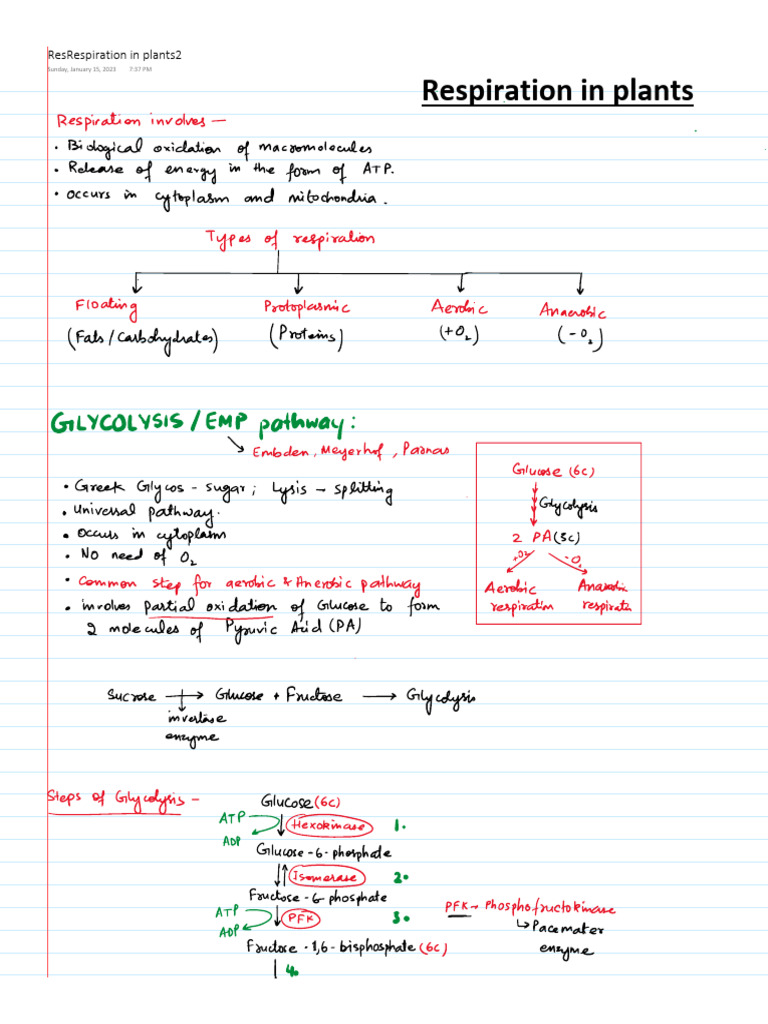 ResRespiration in plants2
Sunday, January 15, 2023 7:37 PM
Respiration in plants
Respiration involves —
• Biological oxidation of macromolecules
• Release of energy in the form of ATP.
• occurs in cytoplasm and mitochondria.
Types of respiration
Floating Protoplasmic Aerobic Anaerobic
(Fats/Carbohydrates) (Proteins) (+O₂) (-O₂)
GLYCOLYSIS / EMP pathway:
Embden, Meyerhof, Parnas
• Greek Glycos - sugar; Lysis - splitting
• Universal pathway.
• occurs in cytoplasm
• No need of O₂
• Common step for aerobic & Anerobic pathway
• involves partial oxidation of Glucose to form
2 molecules of Pyruvic Acid (PA)
Glucose (6C)
Glycolysis
2 PA (3C)
+O₂ -O₂
Aerobic Anaerobic
respiration respiratn
Sucrose → Glucose + Fructose → Glycolysis
invertase
enzyme
Steps of Glycolysis -
Glucose (6C)
ATP Hexokinase 1.
ADP
Glucose-6-phosphate
Isomerase 2.
Fructose-6-phosphate
ATP PFK 3.
ADP
PFK → Phosphofructokinase
↳ Pacemater
enzyme
Fructose-1,6-bisphosphate (6C)
4.